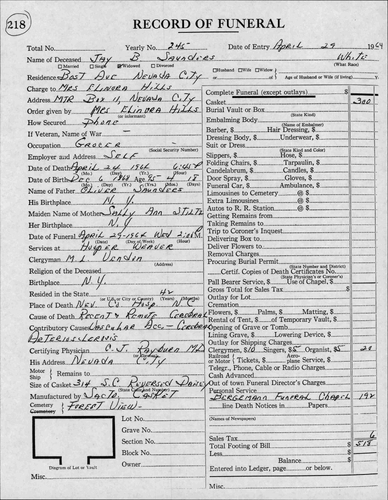 218
RECORD OF FUNERAL
Total No. Yearly No. 245 Date of Entry April 29 1964
Name of Deceased Jay B Saunders White
Married Single Widowed Divorced (What Race)
Residence Bost Ave Nevada City Husband Wife Widow Age of Husband or Wife (if living) Y.
Charge to Mrs Elinora Hills
Address MTR Box 11, Nevada City
Order given by Mrs Elinora Hills
(or informant)
How Secured Phone
If Veteran, Name of War -
Occupation Grocer Social Security Number
Employer and Address Self
Date of Death April 24 1964
Date of Birth Dec 6
Name of Father Oliver Saunders
His Birthplace N.Y.
Maiden Name of Mother Sally Ann
Her Birthplace N.Y.
Date of Funeral April 29-1964 Wed 2:00 P.M.
Services at Hooper Weaver
(Address)
Clergyman M L
Religion of the Deceased
Birthplace N.Y.
Resided in the State 42
(City or County) (Years) (Months)
Place of Death Nev Co Hosp N C
Cause of Death Recent & Remote Cerebral
Contributory Cause Vascular Acc. - Cerebral
Certifying Physician C.J. Rayburn MD
His Address Nevada City
Motor Ship Remains to
Size of Casket 314 S.C. Reversed
Manufactured by Sacto. Casket
Cemetery Forest View -
Crematory
Lot No.
Grave No.
Section No.
Block No.
Owner
Diagram of Lot or Vault
Misc.
Complete Funeral (except outlays) $
Casket 300
Burial Vault or Box
(State Kind)
Embalming Body
(Name of Embalmer)
Barber, $ Hair Dressing, $
Dressing Body, $ Underwear, $
Suit or Dress
(State Kind and Color)
Slippers, $ Hose, $
Folding Chairs, $ Tarpaulin, $
Candelabrum, $ Candles, $
Door Spray, $ Gloves, $
Funeral Car, $ Ambulance, $
Limousines to Cemetery @ $
Extra Limousines @ $
Autos to R. R. Station @ $
Getting Remains from
Taking Remains to
Trip to Coroner's Inquest
Delivering Box to
Deliver Flowers to
Removal Charges
Procuring Burial Permit
(State Number and District)
Certif. Copies of Death Certificates No.
Pall Bearer Service, $ Use of Chapel, $
Gross Total for Sales Tax $
Outlay for Lot
Cremation
Flowers, $ Palms, $ Matting, $
Rental of Tent, $ of Temporary Vault, $
Opening of Grave or Tomb
Lining Grave, $ Lowering Device, $
Outlay for Shipping Charges
Clergyman, $10 Singers, $5 Organist, $5 20
Railroad or Motor Tickets, $ Aeroplane Service, $
Telegr., Phone, Cable or Radio Charges
Cash Advanced
Out of town Funeral Director's Charges
Personal Service
Bergemann Funeral Chapel 192
line Death Notices in Papers
(Names of Newspapers)
Sales Tax 6
Total Footing of Bill $ 518
Less
Balance $
Entered into Ledger, page or below.
Misc.